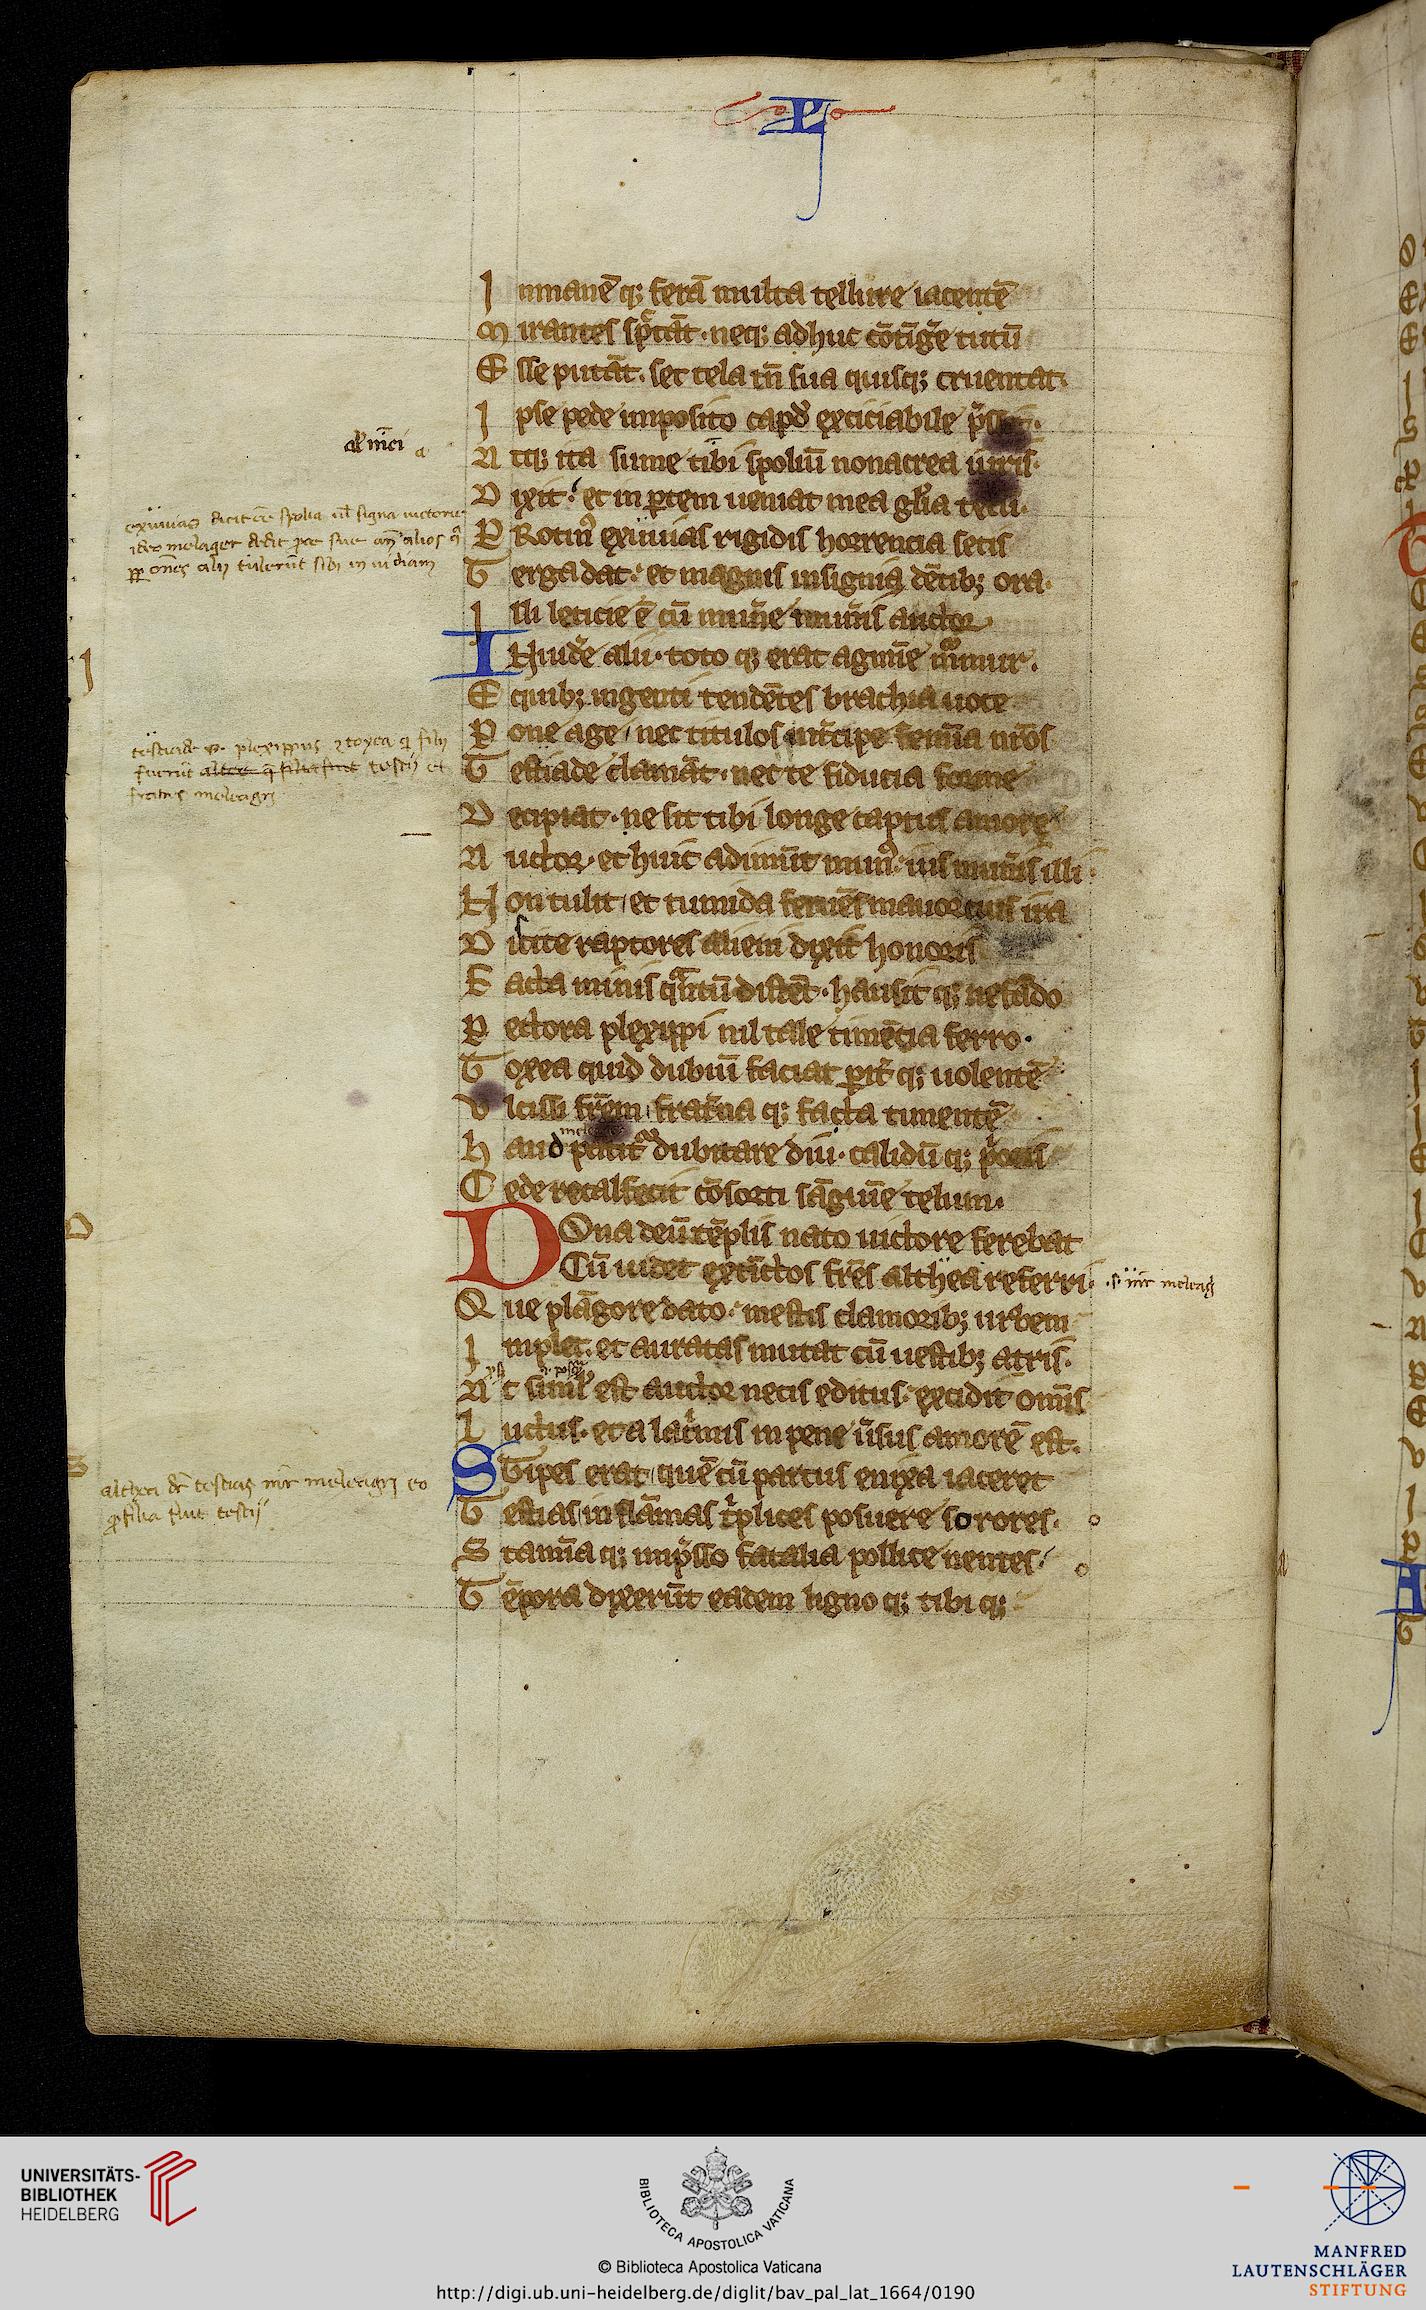 I nmanē q; ferā multa tellure iacentē
M irantes sp̄tāt · neq; adhuc cōtīg̃e tutū
E sse putāt · set tela tn̄ sua quisq; cruentat ·
I pse pede imposito capđ exiciabile p̃ssit ·
A tq; ita sume tibi spoliū nonacrea iuris ·
D ixit · et in ꝑtem ueniat mea gl̃ia tecū ·
P Rotin9 exuuias rigidis horrencia setis
T erga dat · et magnis insignia dētib; ora ·
I lli leticie ē cū mun̄e mun̄is auctor
I Nuid̃e alii · toto q; erat agmīe murmur ·
E quib; ingenti tendētes brachia uoce
P one age / nec titulos int̃cipe femīa nr̄os
T estiade clamāt · nec te fiducia forme
D ecipiat · ne sit tibi longe captus amore
A uctor · et huic adimūt mun9 · ius mun̄is illi ·
N on tulit / et tumida feruēs mauortius ira
D iscite raptores alieni dixit honoris
F acta minis q̃ntū distēt · hausit q; nefādo
P ectora plexippi nil tale timētia ferro ·
T oxea quid dubiū faciat ꝑit̃ q; uolentē
V lcissi fr̄em / frat̃na q; facta timentē
h aud patit̃ dubitare diu · calidū q; p̃ori
C ede recalfecit cōsorti sāguīe telum ·
D Ona deū tēplis nato uictore ferebat
Cū uidet extīctos fr̄es althea referri · .s. mr̄ meleag̃
Q ue plāgore dato · mestis clamorib; urbem
I mplet · et auratas mutat cū uestib; atris ·
A t simul est auctor necis editus · excidit omīs
L uctus · et a lac̃mis in pene ũsus amorē est ·
S Tipes erat / quē cū partus enixa iaceret
T estias in flāmas t̃plices posuere sorores ·
S tamīa q; imp̃sso fatalia pollice nentes ·
T ēpora dixerūt eadem ligno q; tibi q;
exuuias dicit
plexippus
fratris meleagri
althea dr̄ testias mr̄ meleagri eo
filia fuit testij
UNIVERSITÄTS-
BIBLIOTHEK
HEIDELBERG
BIBLIOTECA APOSTOLICA VATICANA
© Biblioteca Apostolica Vaticana
http://digi.ub.uni-heidelberg.de/diglit/bav_pal_lat_1664/0190
MANFRED
LAUTENSCHLÄGER
STIFTUNG